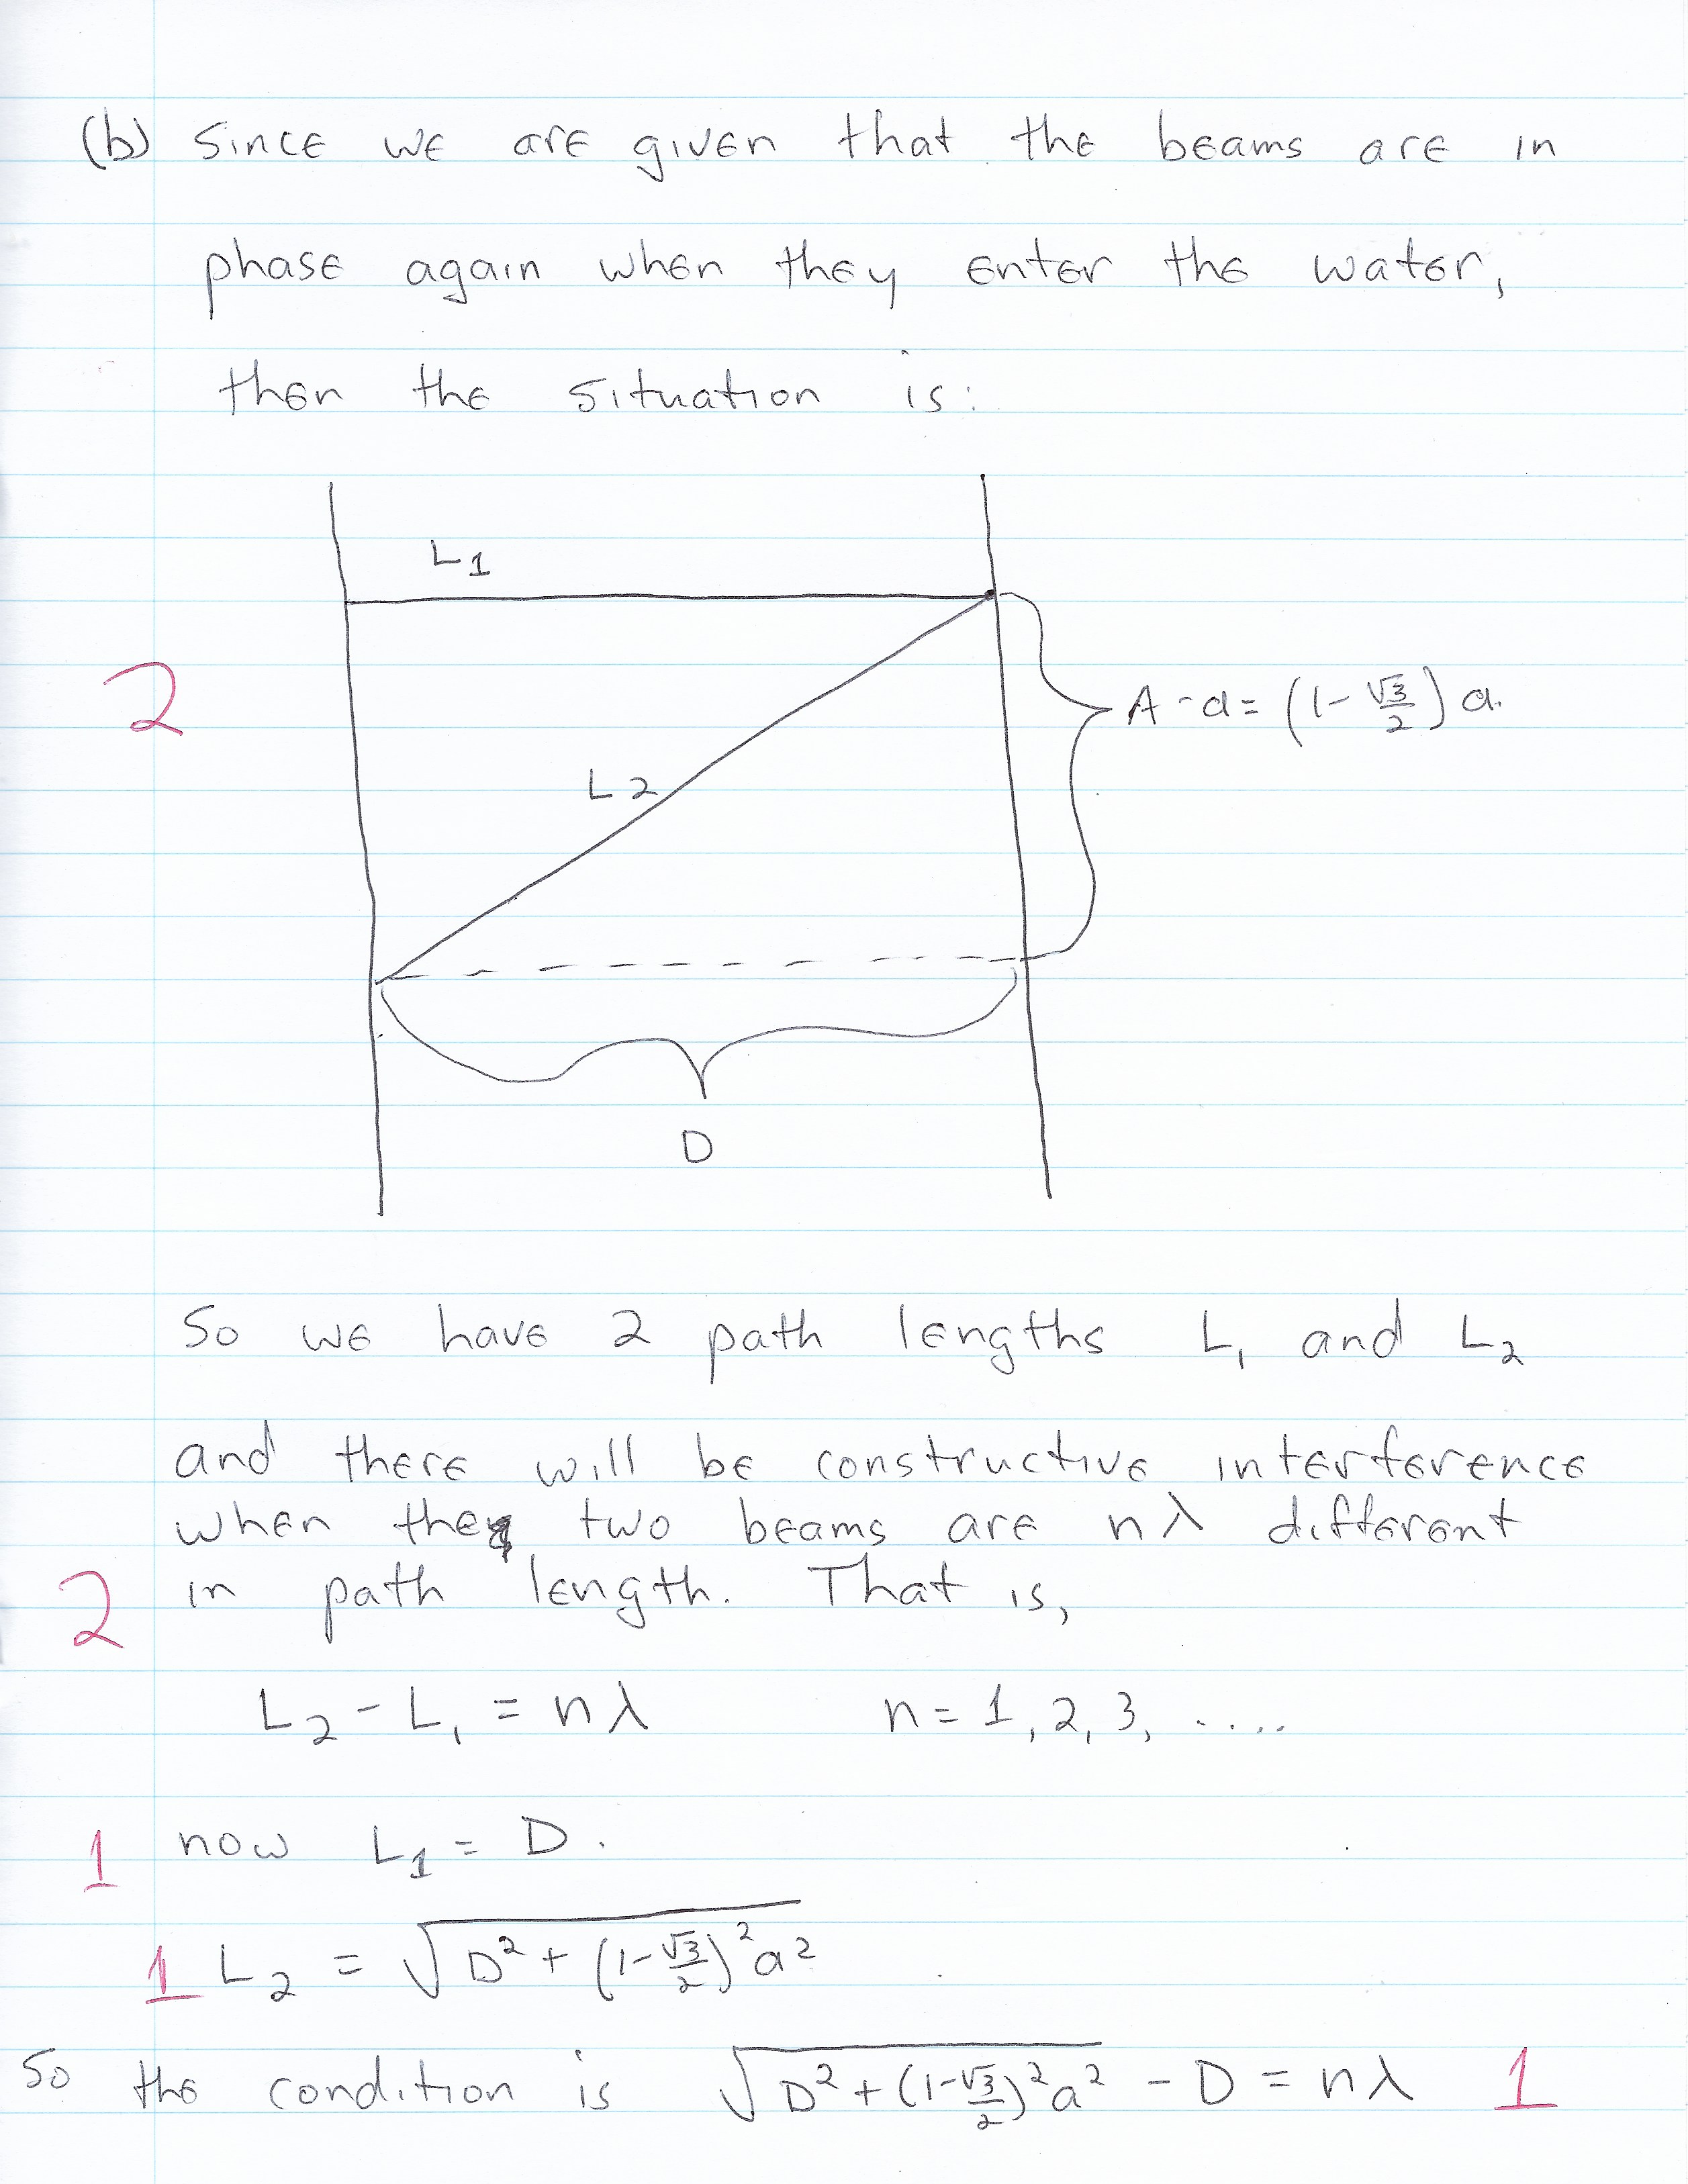 (b) Since we are given that the beams are in
phase again when they enter the water,
then the situation is:
L₁
2
A - a = (1 - √3/2) a.
L₂
D
So we have 2 path lengths L₁ and L₂
and there will be constructive interference
when the two beams are nλ different
2 in path length. That is,
L₂ - L₁ = nλ n = 1, 2, 3, .....
1 now L₁ = D.
1 L₂ = √(D² + (1 - √3/2)² a²)
So the condition is √(D² + (1 - √3/2)² a²) - D = nλ 1